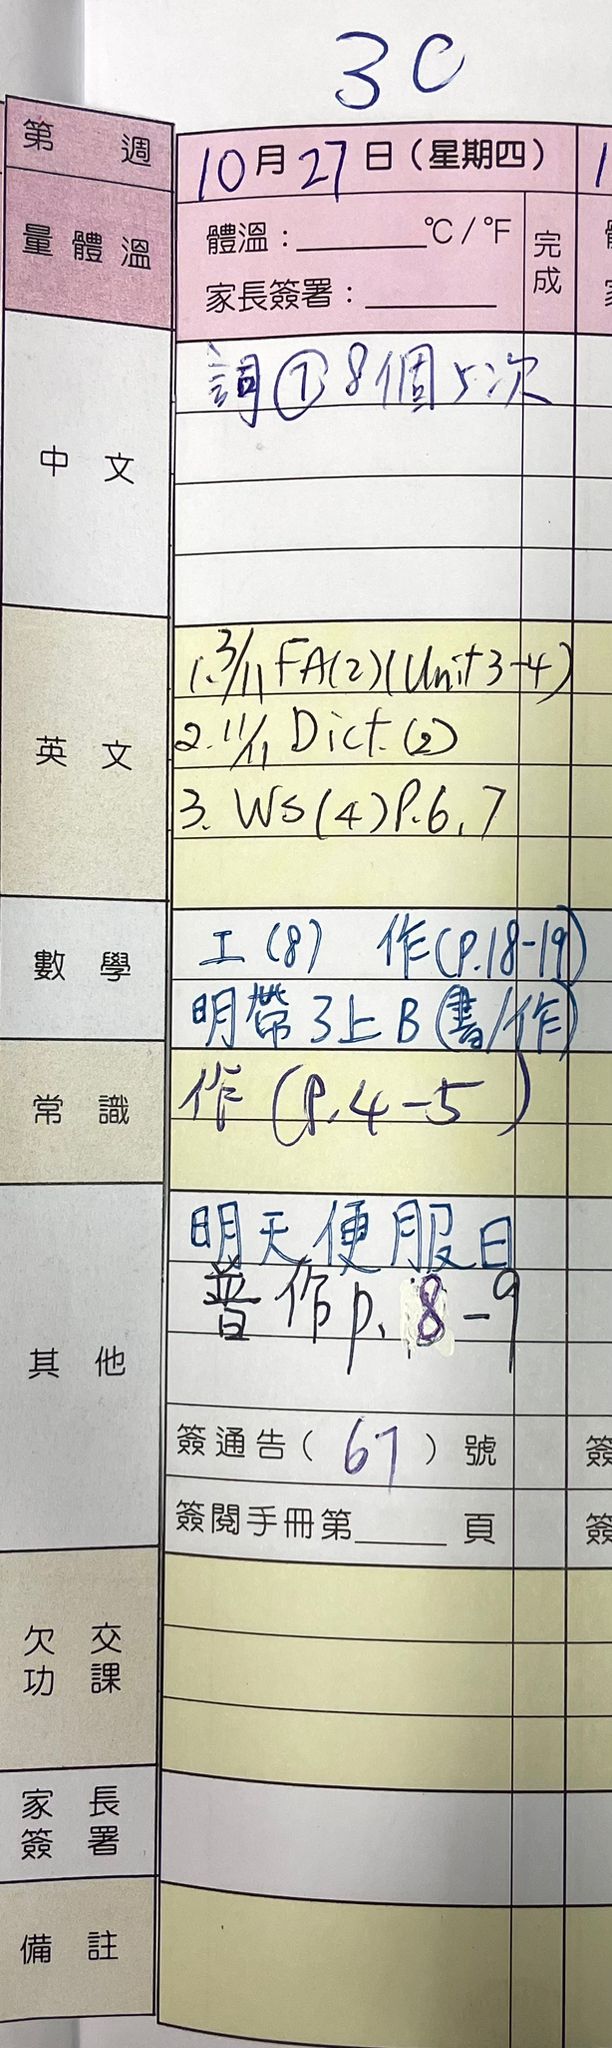 3C
第 週
10月27日(星期四)
量體溫
體溫:______°C/°F
家長簽署:______
完成
中文
詞① 8個5次
英文
1. 3/11 FA(2)(Unit 3-4)
2. 11/11 Dict. (2)
3. WS(4) P.6,7
數學
工(8) 作(P.18-19)
明帶3上B(書/作)
常識
作(P.4-5)
其他
明天便服日
普作p.8-9
簽通告(67)號
簽閱手冊第____頁
欠交功課
家長簽署
備註